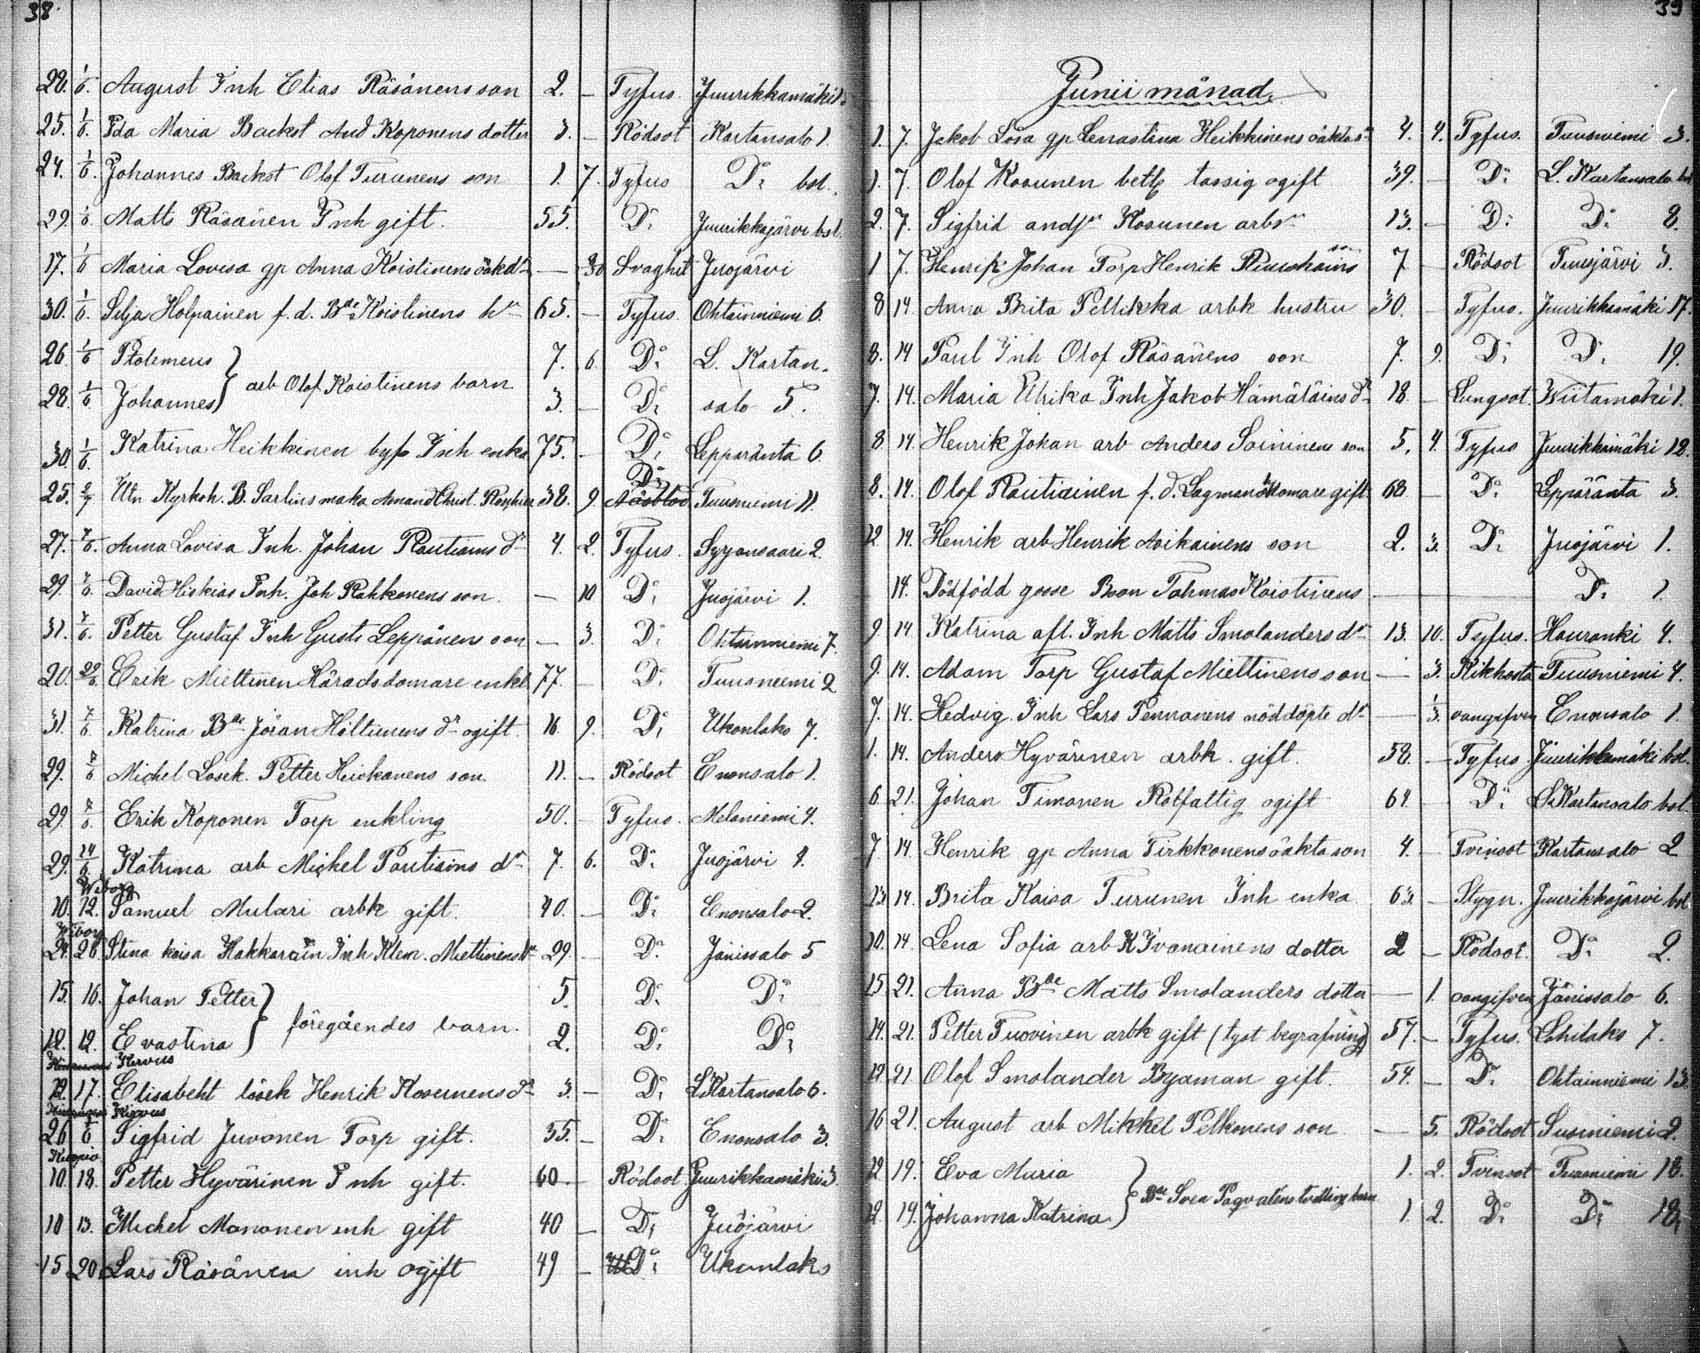 38.
28. 1/6. August Inh Elias Räsänens son 2. – Tyfus. Juurikkamäki
25. 1/6. Ida Maria Backst And Koponens dotter 3. – Rödsot Kartansalo 1.
24. 1/6. Johannes Backst Olof Turunens son 1. 7. Tyfus Do bol.
29. 1/6 Matts Räsänen Inh gift. 55. Do Juurikkajärvi bol.
17. 1/6 Maria Lovisa gp Anna Koistinens oäkt dr — 30 Svaghet Juojärvi
30. 1/6. Silja Holpainen f.d. Bde Koistinens hu 65. – Tyfus. Ohtainniemi 6.
26 1/6 Ptolemeus } arb Olof Koistinens barn 7. 6. Do L. Kartan-
28. 1/6. Johannes 3. – Do salo 5.
30. 1/6. Katrina Heikkinen byfo Inh enka 75. – Do Leppäränta 6.
25. Utr Kyrkoh. B. Sarlins maka Amand Christ. 38. 9. Do Tuusniemi 11.
27. 7/6. Anna Lovisa Inh. Johan Rautiains dr 4. 2. Tyfus. Syyonsaari 2.
29. 7/6. David Hiskias Inh. Joh Pahkonens son. — 10 Do Juojärvi 1.
31. 7/6. Petter Gustaf Inh Gusts Leppänens son — 3. Do Ohtainniemi 7.
20. Erik Miettinen Häradsdomare enkl 77. – Do Tuusniemi 2
31. 7/6 Katrina Bde Jöran Hiltunens dr ogift. 16. 9. Do Ukonlaks 7.
29. 7/6 Michel Lösk. Petter Heiskanens son 11. – Rödsot Enonsalo 1.
29. 7/6. Erik Koponen Torp enkling 50. – Tyfus. Melaniemi 4.
29. 14/6. Katrina arb Mickel Pautiains dr 7. 6. Do Juojärvi
Wiborg
10. 12. Samuel Mulari arbk gift. 40. – Do Enonsalo 2.
Wiborg
24. 26. Stina kaisa Hakkarain Inh Klem. Miettinens hu 29. – Do Jänissalo 5
15. 16. Johan Petter } föregåendes barn. 5. Do Do
12. 12. Evastina 2. Do Do
17. Elisabeht lösk Henrik Kosunens dr 3. – Do L Kartansalo 6.
26. 1/6. Sigfrid Juvonen Torp gift. 35. – Do Enonsalo 3.
Kuopio
10. 18. Petter Hyvärinen Inh gift. 60 – Rödsot Juurikkamäki 3
10 13. Michel Manonen inh gift 40 – Do Juojärvi
15 20 Lars Räsänen inh ogift 49 – Do Ukonlaks
39
Junii månad,
1. 7. Jakob Lova gp Lenastina Heikkinens oäkta sn 4. 9. Tyfus. Tuusniemi 3.
1. 7. Olof Kosunen betl tassig ogift 39. – Do L. Kartansalo bol
2. 7. Sigfrid Kosunen arb 13. – Do Do 8.
1 7. Henrik Johan Torp Henrik son 7 – Rödsot Tuusjärvi 3.
8 14. Anna Brita Pellikka arbk hustru 30. – Tyfus. Juurikkamäki 17.
8. 14 Paul Inh Olof Räsänens son 7. 9. Do Do 19.
7. 14. Maria Ulrika Inh Jakob Hämäläins dr 18 – Lungsot. Wiitamäki 1.
8 14. Henrik Johan arb Anders Soininens son 5. 4. Tyfus Juurikkamäki 12.
8. 14. Olof Rautiainen f.d. Lagmansdomare gift 68 – Do Leppäränta 3.
12 14. Henrik arb Henrik Asikainens son 2. 3. Do Juojärvi 1.
14. Dödfödd gosse Bson Tahmas Koistinens — — — Do 1
9 14. Katrina afl. Inh Matts Smolanders dr 13. 10. Tyfus. Hauranki 4.
9. 14. Adam Torp Gustaf Miettinens son — 3. Kikhosta Tuusniemi 4.
7. 14. Hedvig Inh Lars Pennanens nöddöpte dr — 3. oangifven Enonsalo 1
1. 14. Anders Hyvärinen arbk. gift. 58. – Tyfus. Juurikkamäki bol.
6 21. Johan Timonen Rotfattig ogift 64 – Do L. Kartansalo bol
7 14. Henrik gp Anna Tirkkonens oäkta son 4. – Tvinsot Kartansalo 2
13 14. Brita Kaisa Turunen Inh enka 63. – Stygn. Juurikkajärvi bol
10. 14. Lena Sofia arb K Ivanainens dotter 2 – Rödsot. Do 2.
15 21. Anna Bde Matts Smolanders dotter — 1. oangifven Jänissalo 6.
14. 21. Petter Tuovinen arbk gift (tyst begrafning) 57. – Tyfus. Lihilaks 7.
12 21 Olof Smolander Byaman gift. 54. – Do Ohtainniemi 13.
16 21. August arb Mikkel Pelkonens son — 5. Rödsot Susiniemi 2.
12 19. Eva Maria } tvilling barn 1. 2. Tvinsot Tuusniemi 18.
12. 19. Johanna Katrina 1. 2. Do Do 18,